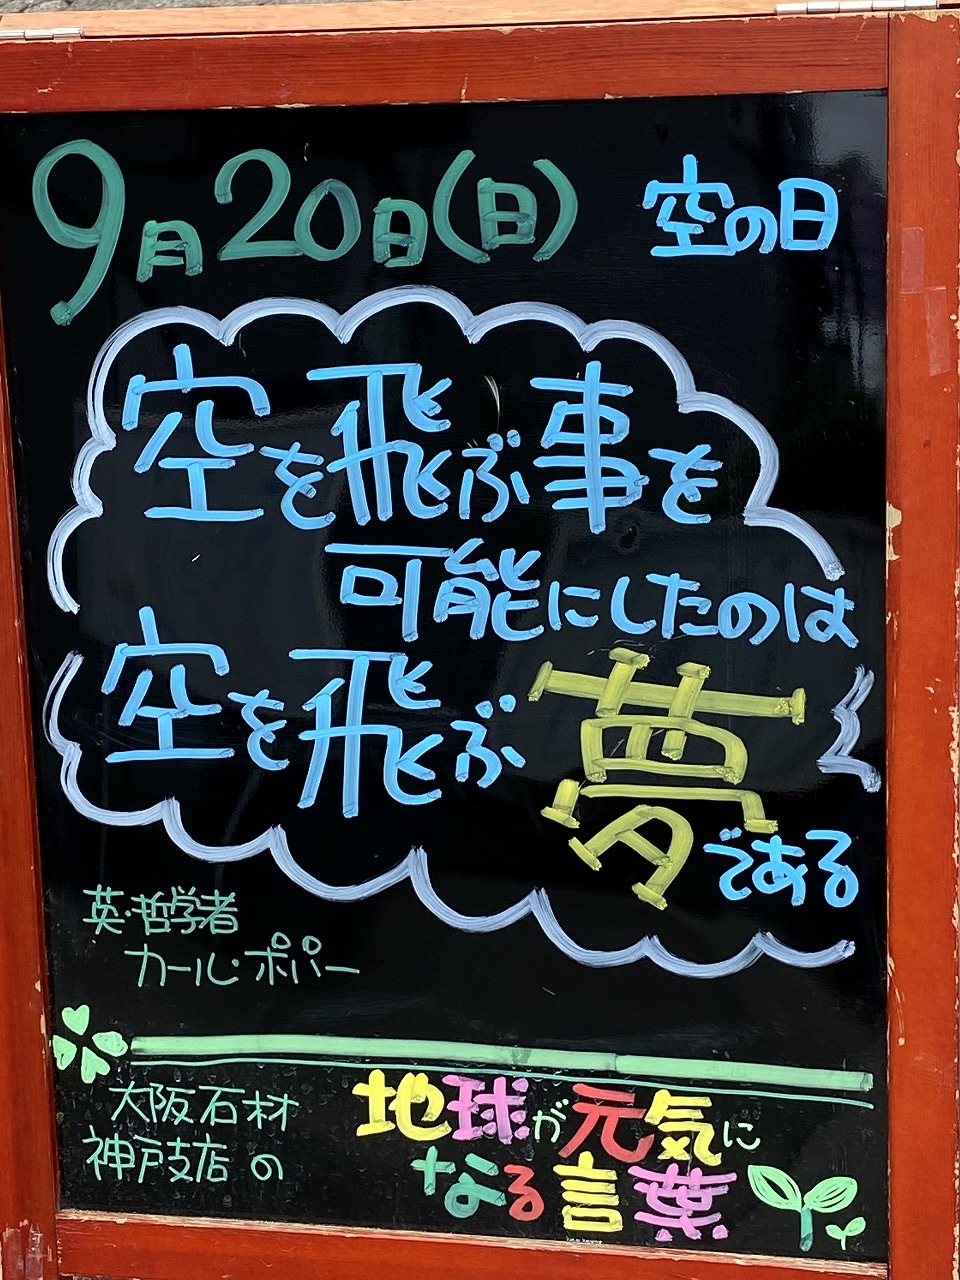 9月20日(日) 空の日
空を飛ぶ事を
可能にしたのは
空を飛ぶ夢
である
英・哲学者
カール・ポパー
大阪石材
神戸支店の
地球が元気に
なる言葉